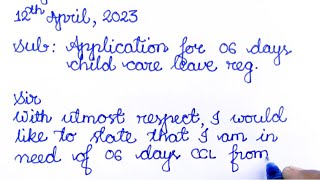 12th April, 2023
Sub: Application for 06 days
child care leave reg.
Sir
With utmost respect, I would
like to state that I am in
need of 06 days CCL from